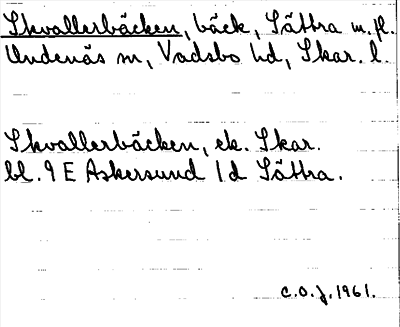 Skvallerbäcken, bäck, Sättra m.fl.
Undenäs sn, Vadsbo hd, Skar. l.
Skvallerbäcken, ek. Skar.
bl. 9 E Askersund 1 d Sättra.
C.O.J. 1961.